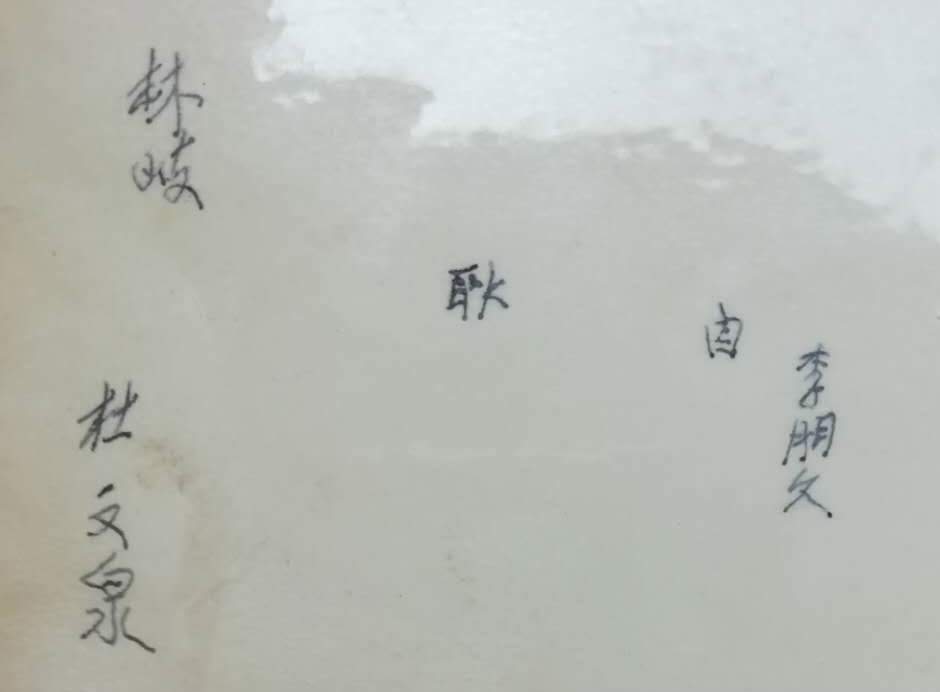 林岐
耿
自
李朋久
杜文泉